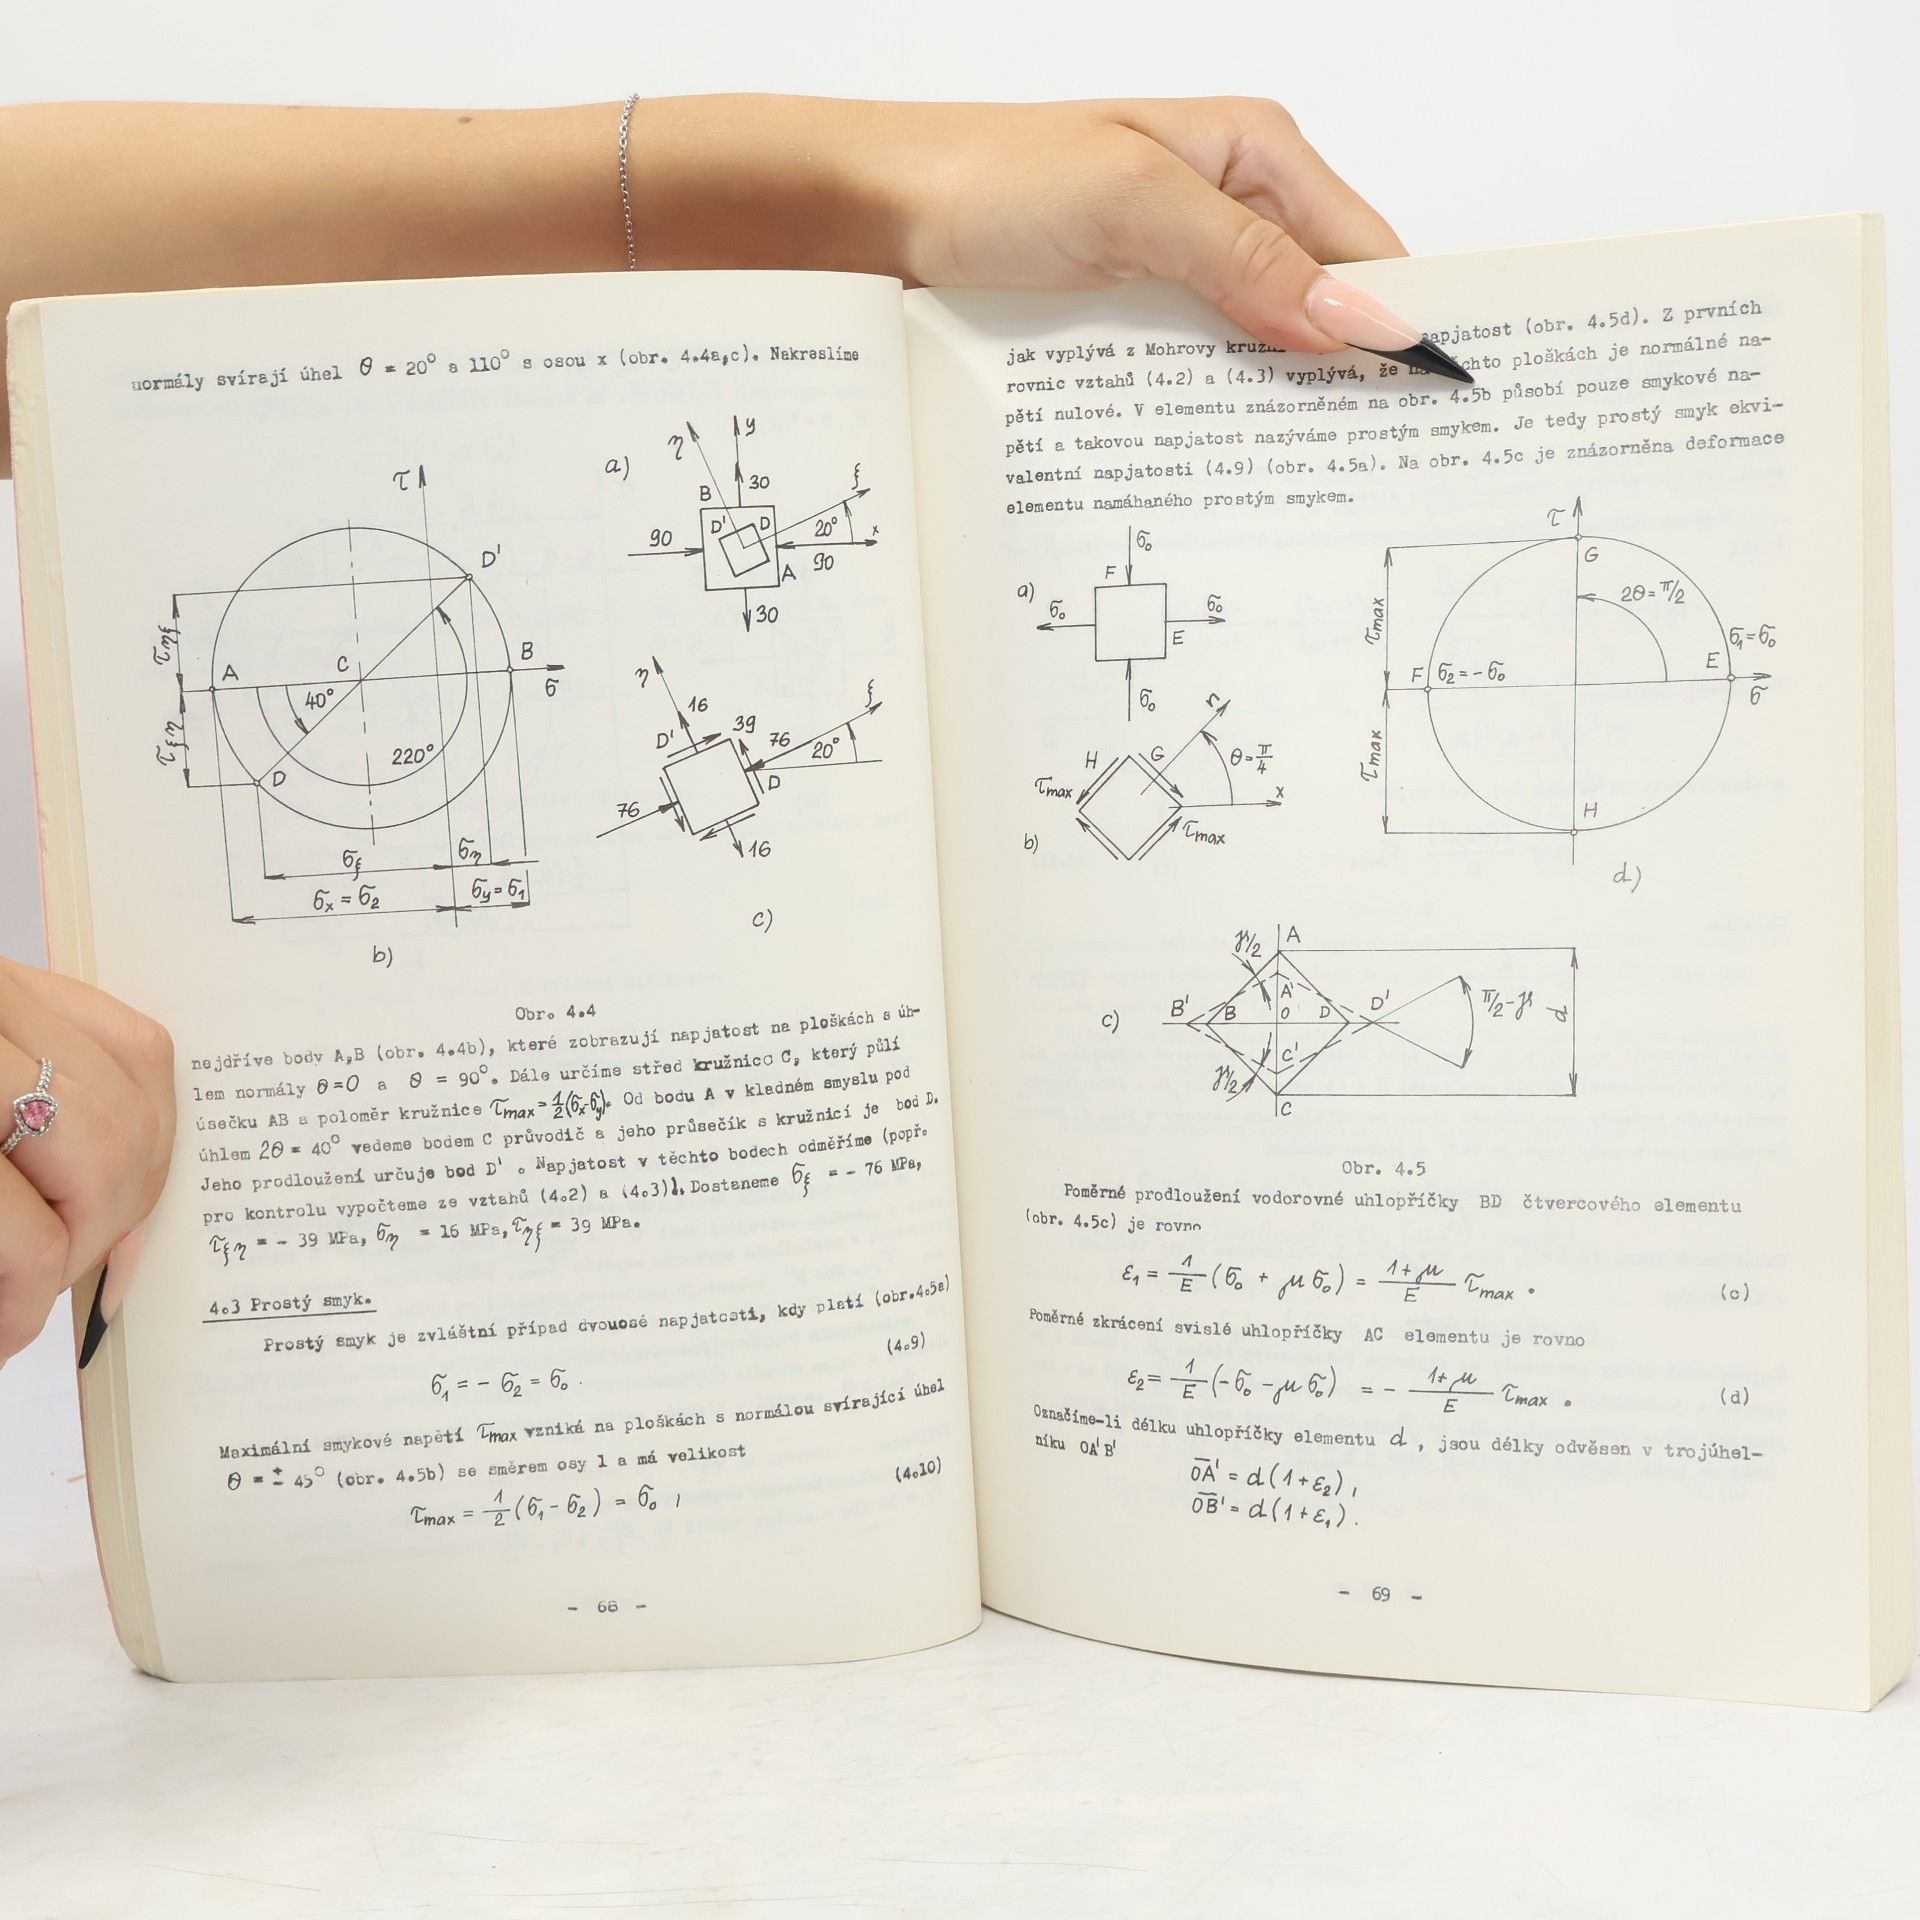 normály svírají úhel θ = 20° a 110° s osou x (obr. 4.4a,c). Nakreslíme
a)
η
y
30
ξ
B
D'
D
20°
x
90
A
90
30
τ
D'
τηξ
A
C
B
σ
40°
τξη
220°
D
σξ
ση
σx = σ2
σy = σ1
b)
η
16
ξ
D'
39
76
20°
D
76
16
c)
Obr. 4.4
nejdříve body A,B (obr. 4.4b), které zobrazují napjatost na ploškách s úh-
lem normály θ=0 a θ = 90°. Dále určíme střed kružnice C, který půlí
úsečku AB a poloměr kružnice τmax = 1/2(σx-σy). Od bodu A v kladném smyslu pod
úhlem 2θ = 40° vedeme bodem C průvodič a jeho průsečík s kružnicí je bod D.
Jeho prodloužení určuje bod D'. Napjatost v těchto bodech odměříme (popř.
pro kontrolu vypočteme ze vztahů (4.2) a (4.3)). Dostaneme σξ = - 76 MPa,
τξη = - 39 MPa, ση = 16 MPa, τηξ = 39 MPa.
4.3 Prostý smyk.
Prostý smyk je zvláštní případ dvouosé napjatosti, kdy platí (obr.4.5a)
σ1 = - σ2 = σ0 . (4.9)
Maximální smykové napětí τmax vzniká na ploškách s normálou svírající úhel
θ = ± 45° (obr. 4.5b) se směrem osy 1 a má velikost
τmax = 1/2 (σ1 - σ2) = σ0 , (4.10)
- 68 -
jak vyplývá z Mohrovy napjatost (obr. 4.5d). Z prvních
rovnic vztahů (4.2) a (4.3) vyplývá, že ploškách je normálné na-
pětí nulové. V elementu znázorněném na obr. 4.5b působí pouze smykové na-
pětí a takovou napjatost nazýváme prostým smykem. Je tedy prostý smyk ekvi-
valentní napjatosti (4.9) (obr. 4.5a). Na obr. 4.5c je znázorněna deformace
elementu namáhaného prostým smykem.
a)
σ0
F
σ0
σ0
E
σ0
n
H
G
θ = π/4
τmax
x
τmax
b)
τ
G
2θ = π/2
τmax
σ1 = σ0
F
σ2 = - σ0
E
σ
τmax
H
d)
γ/2
A
B'
B
A'
0
D
D'
π/2 - γ
d
c)
C'
γ/2
C
Obr. 4.5
Poměrné prodloužení vodorovné uhlopříčky BD čtvercového elementu
(obr. 4.5c) je rovno
ε1 = 1/E (σ0 + μ σ0) = (1+μ)/E τmax . (c)
Poměrné zkrácení svislé uhlopříčky AC elementu je rovno
ε2 = 1/E (- σ0 - μ σ0) = - (1+μ)/E τmax . (d)
Označíme-li délku uhlopříčky elementu d , jsou délky odvěsen v trojúhel-
níku OA'B'
OA' = d (1 + ε2) ,
OB' = d (1 + ε1) .
- 69 -